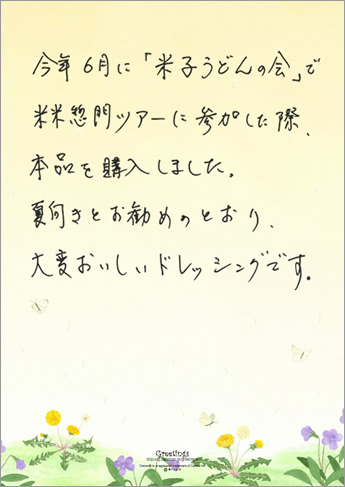 今年6月に「米子うどんの会」で
米米惣門ツアーに参加した際、
本品を購入しました。
夏向きとお勧めのとおり、
大変おいしいドレッシングです。
Greetings